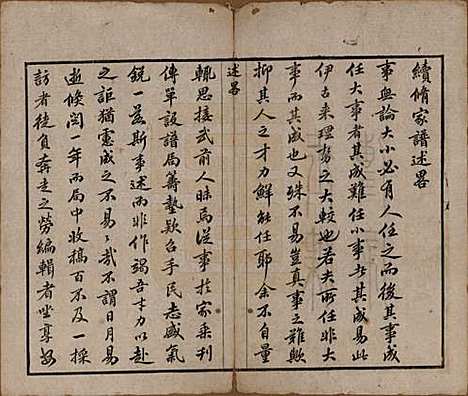 續脩家譜述畧
事無論大小必有人任之而後其事成
任大事者其成難任小事者其成易此
伊古來理勢之大較也若夫所任非大
事而其成也又殊不易豈真事之難歟
抑其人之才力鮮能任耶余不自量
述畧
輒思接武前人昧焉從事於家乘刊
傳單設譜局籌墊欵台手民志盛氣
銳一若斯事述而非作竭吾才力以赴
之詎猶憲成之不易易哉不謂日月易
逝倏閱一年而局中收稿百不及一採
訪者徒負奔走之勞編輯者坐享安